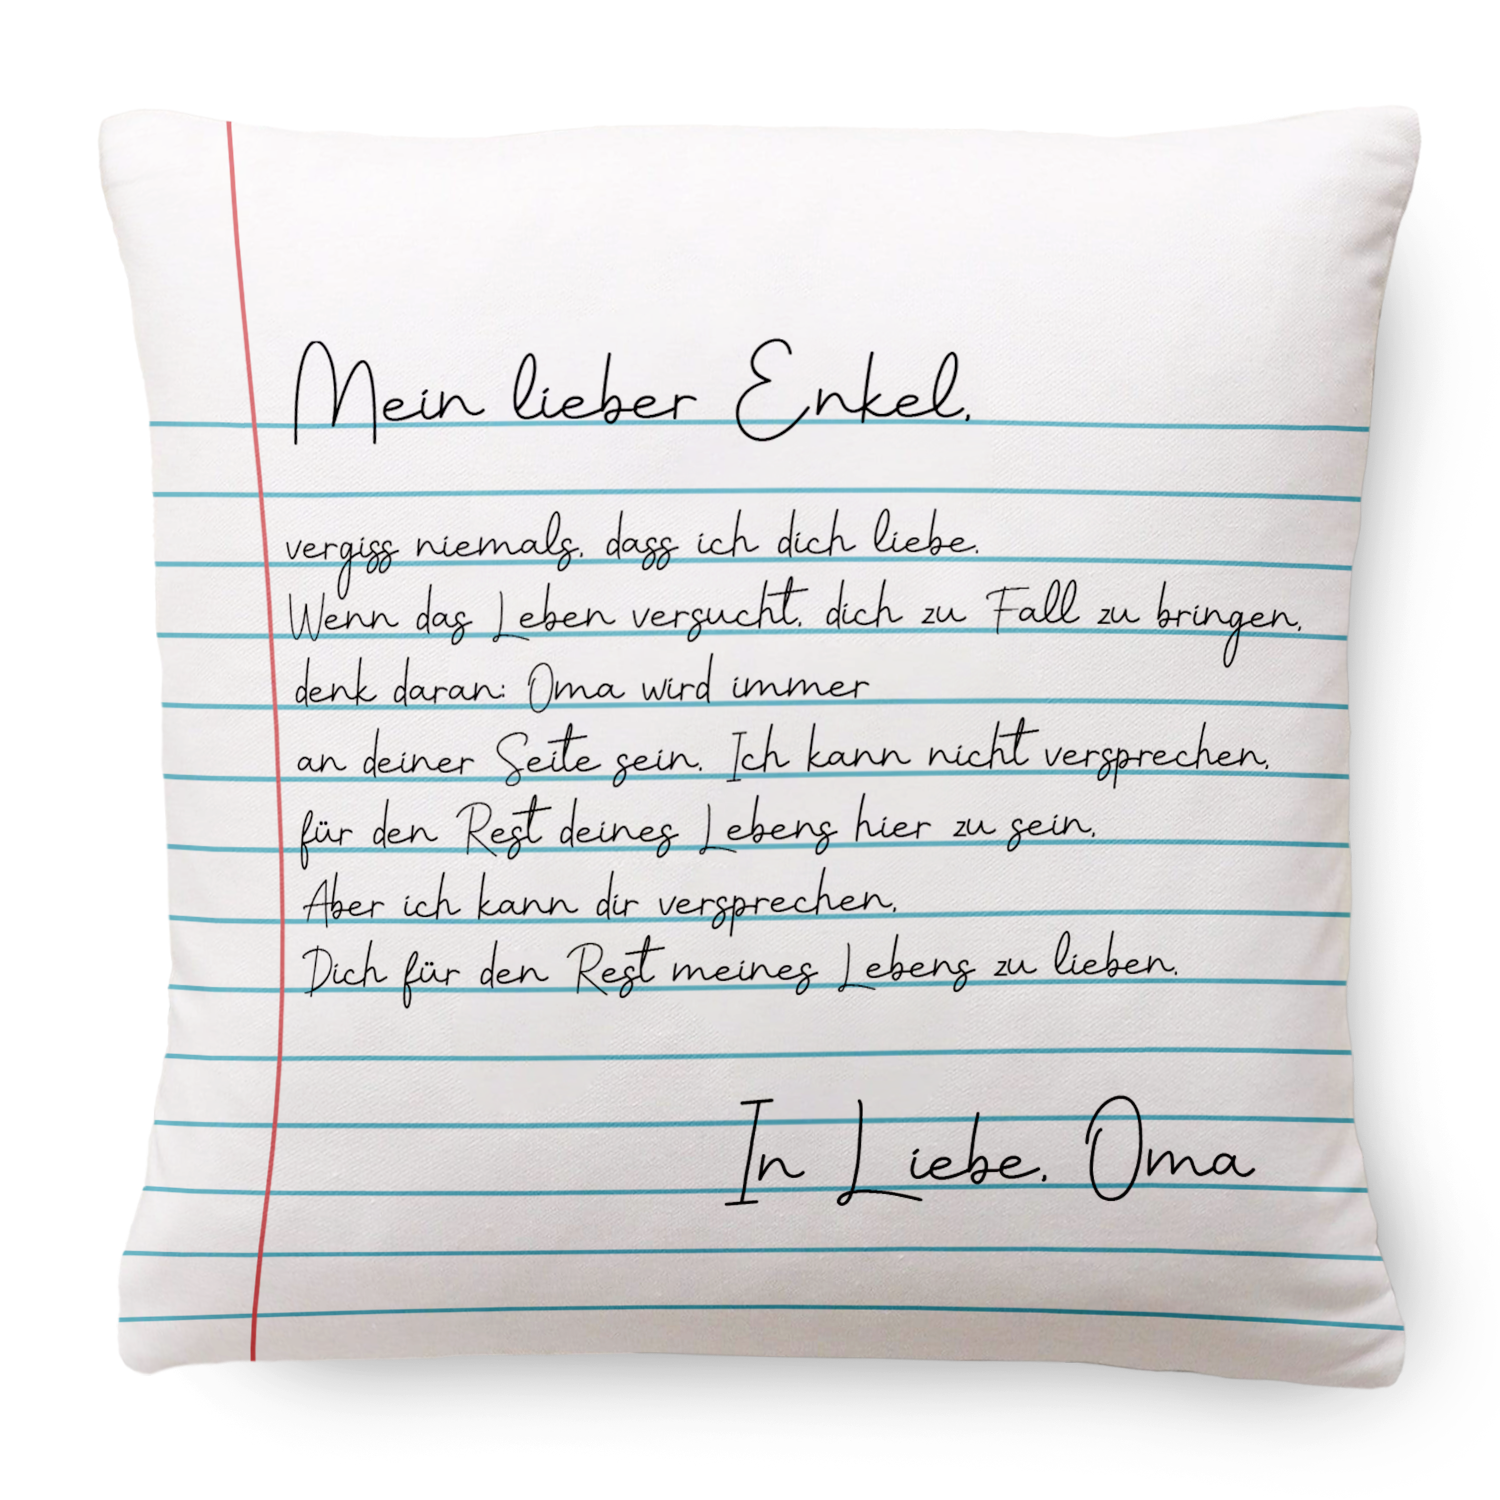 Mein lieber Enkel,
vergiss niemals, dass ich dich liebe.
Wenn das Leben versucht, dich zu Fall zu bringen,
denk daran: Oma wird immer
an deiner Seite sein. Ich kann nicht versprechen,
für den Rest deines Lebens hier zu sein,
Aber ich kann dir versprechen,
Dich für den Rest meines Lebens zu lieben.
In Liebe, Oma